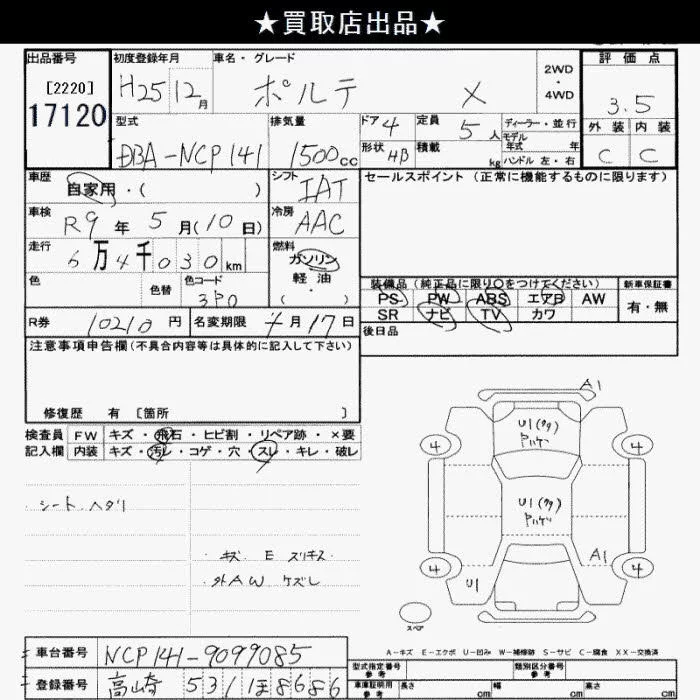 ★買取店出品★
出品番号 初度登録年月 車名・グレード 2WD・4WD 評価点
[2220] H25 12月 ポルテ X 3.5
17120 型式 排気量 ドア 4 定員 5人 ディーラー・並行 外装 内装
モデル年式 年
DBA-NCP141 1500cc 形状 4B 積載 kg ハンドル 左・右 C C
車歴 自家用・( ) シフト IAT セールスポイント(正常に機能するものに限ります)
車検 R9年5月(10日) 冷房 AAC
走行 6万4千030km 燃料 ガソリン 軽油 (・)
色 色替 色コード 3P0 装備品(純正品に限り○をつけてください) 新車保証書
PS PW ABS エアB AW 有・無
SR ナビ TV カワ
R券 10210円 名変期限 7月17日 後日品
注意事項申告欄(不具合内容等は具体的に記入して下さい)
修復歴 有 [箇所 ]
検査員 FW キズ・飛石・ヒビ割・リペア跡・×要
記入欄 内装 キズ・汚レ・コゲ・穴・スレ・キレ・破レ
シート ヘタリ
キズ E スリキズ
外AW ケズレ
A1
U1(クリ)
4 4
U1(クリ)
A1
4 4
U1
スペア
A-キズ E-エクボ U-凹み W-補修跡 S-サビ C-腐食 XX-交換済
車台番号 NCP141-9099085
型式指定番号 参考 類別区分番号 参考
登録番号 高崎 531 ほ8686
車庫証明用 参考 長さ cm 幅 cm 高さ cm